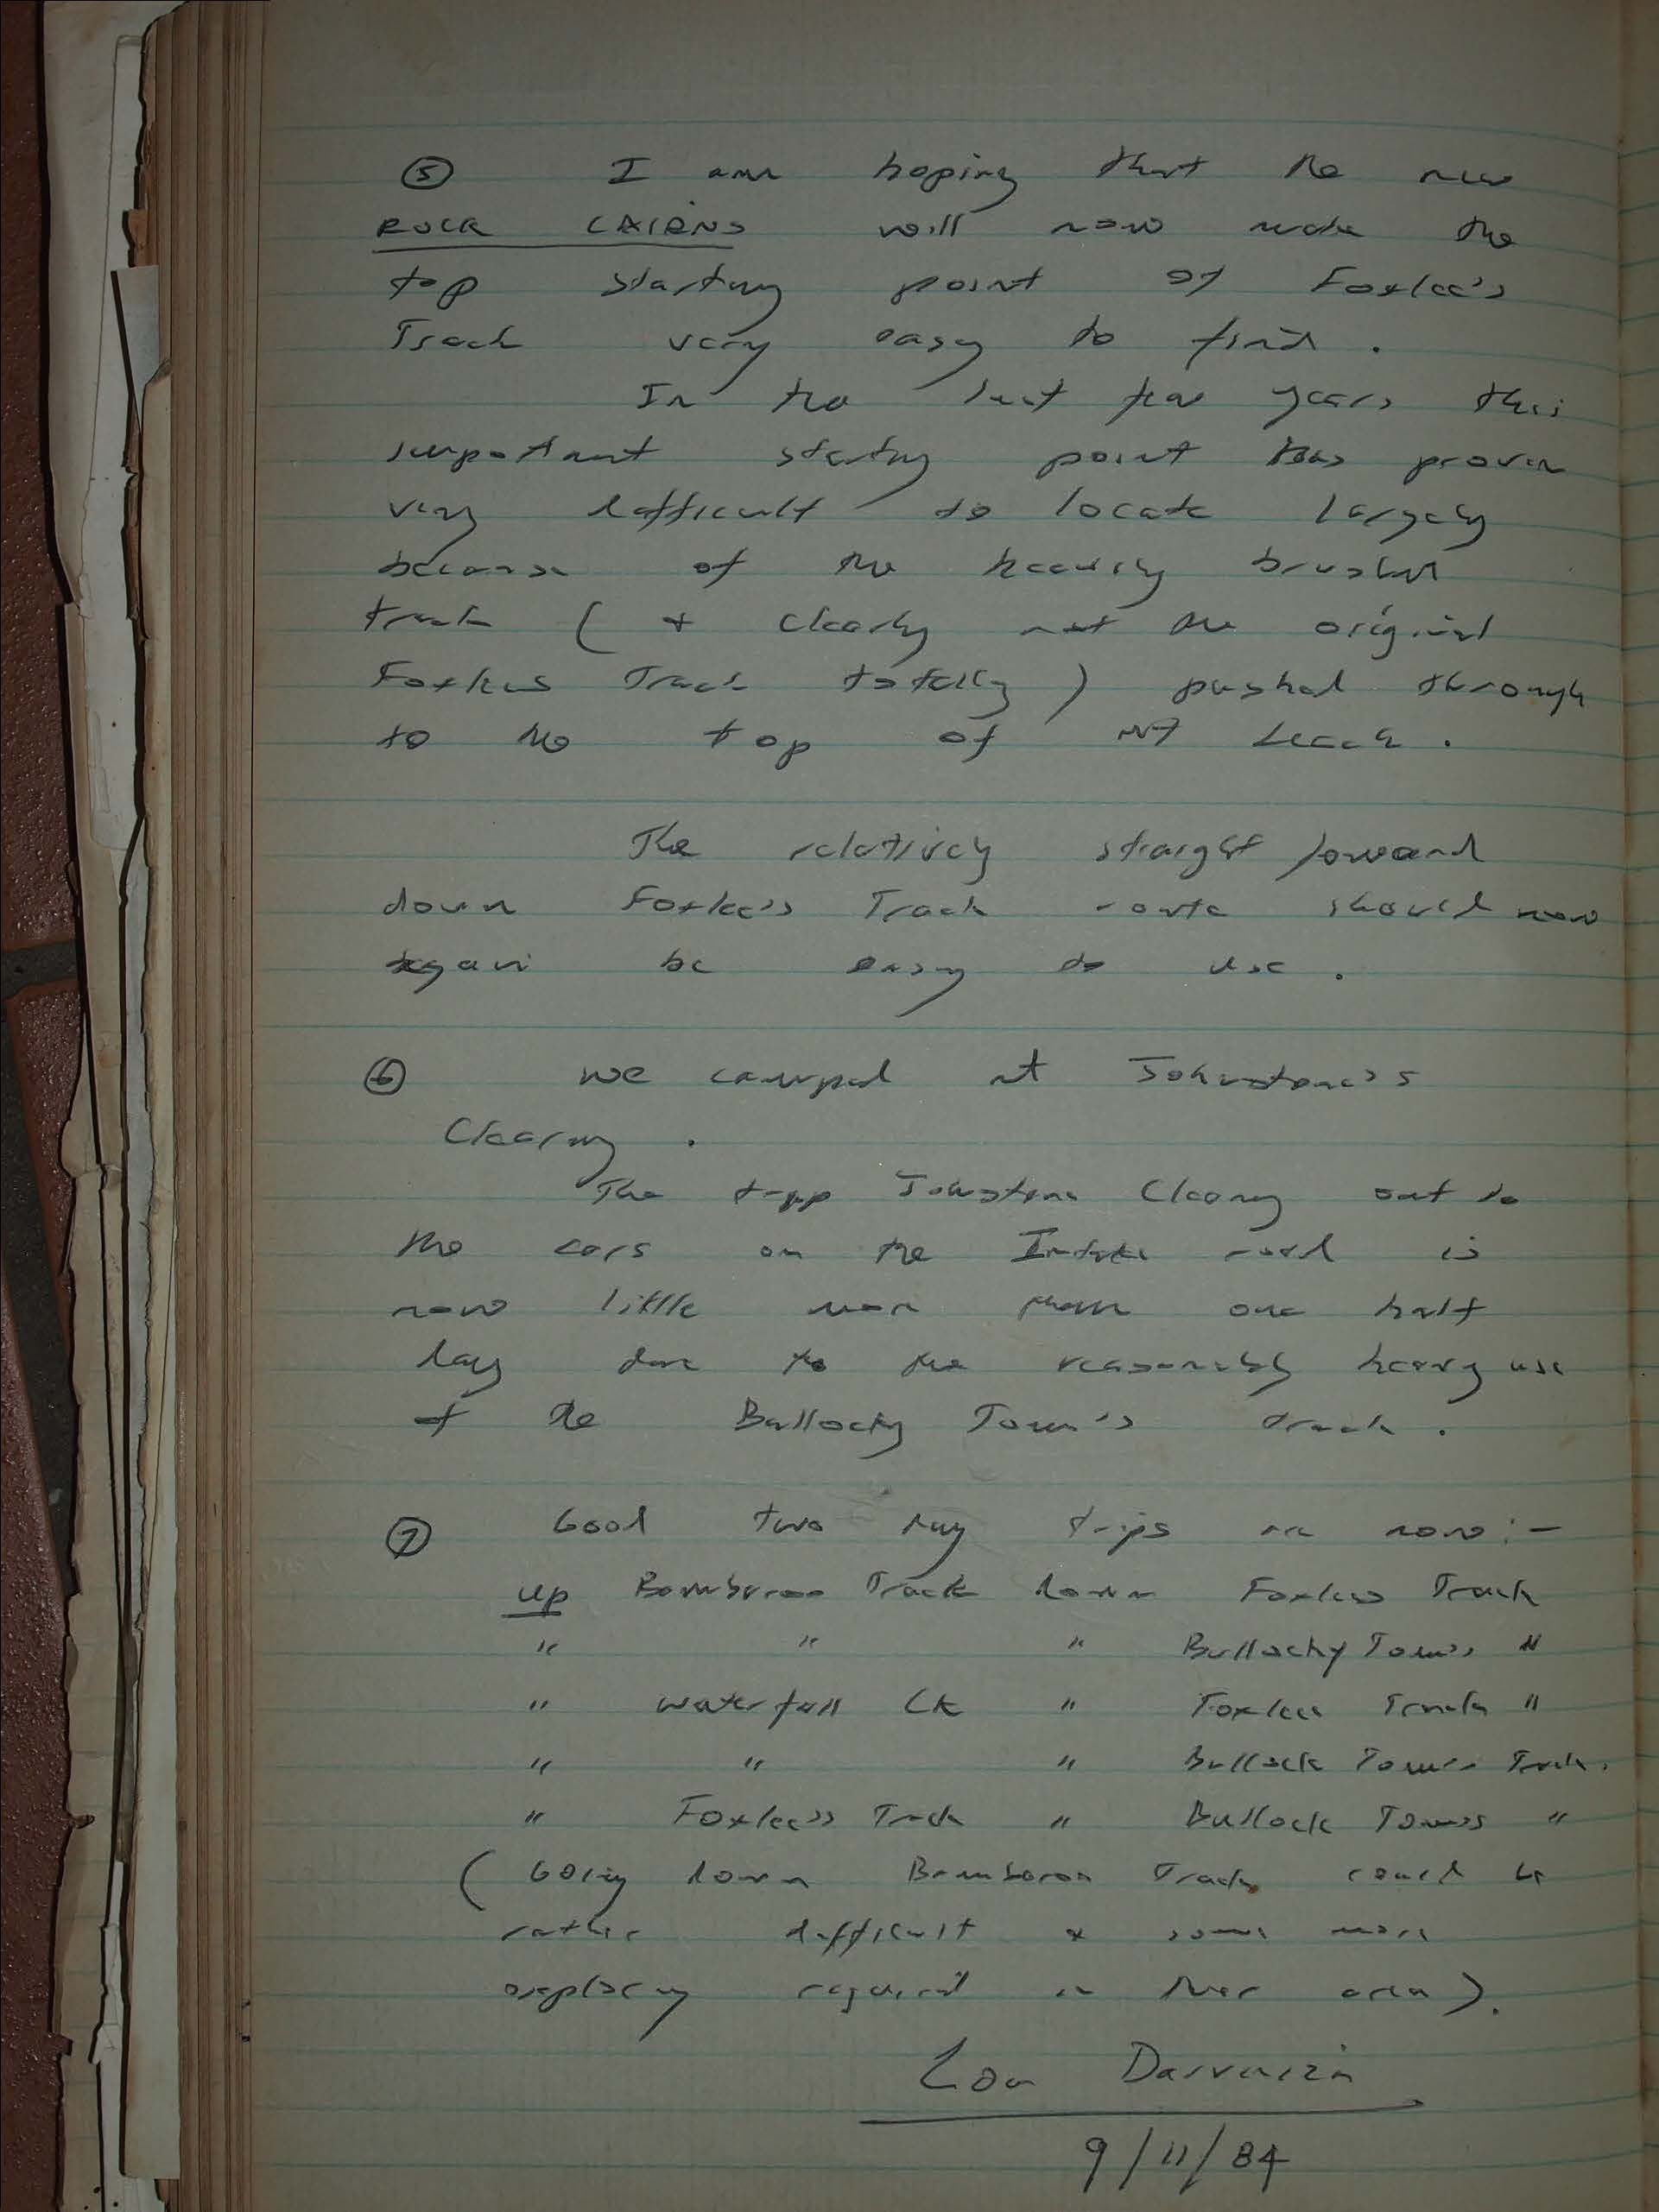 ⑤ I am hoping that the new
ROCK CAIRNS will now make the
top starting point of Foxlee's
Track very easy to find.
In the last few years this
important starting point has proven
very difficult to locate largely
because of the heavily brushed
track (& clearly not the original
Foxlees Track totally) pushed through
to the top of Mt Leach.
The relatively straight forward
down Foxlee's Track route should now
again be easy to use.
⑥ We camped at Johnstone's
Clearing.
The trip Johnstone Clearing out to
the cars on the Intake road is
now little more than one half
day due to the reasonably heavy use
of the Bullocky Tom's track.
⑦ Good two day trips are now:-
up Bomburoo Track down Foxlees Track
" " " Bullocky Tom's "
" Waterfall Ck " Foxlee Track "
" " " Bullock Tom's Track.
" Foxlee's Track " Bullock Tom's "
(Going down Track could be
rather difficult & some more
exploring required in this area).
Lou
9/11/84